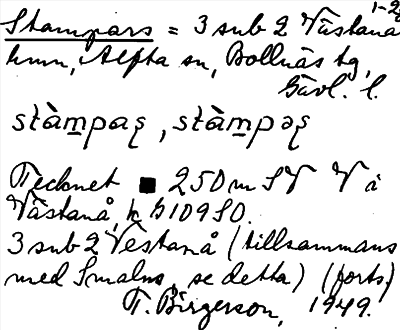 1-2
Stampars = 3 sub 2 Västanå
hmn, Alfta sn, Bollnäs tg,
Gävl. l.
stàm̲pas̨, stàm̲pəs̨
Tecknet ■ 250 m SV V i
Västanå, k b 109 SO.
3 sub 2 Västanå (tillsammans
med Smalns, se detta) (forts)
T. Birgerson, 1949.